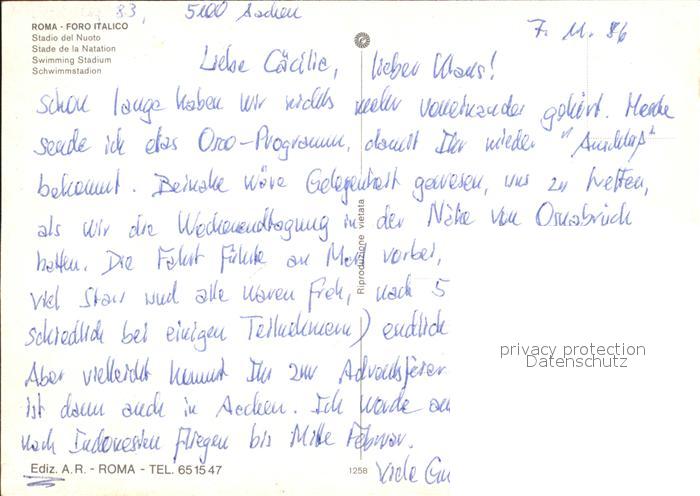 83, 5100 Aachen
ROMA - FORO ITALICO
Stadio del Nuoto
Stade de la Natation
Swimming Stadium
Schwimmstadion
7. 11. 86
Liebe Cäcilie, lieber Klaus!
schon lange haben wir nichts mehr voneinander gehört. Heute
sende ich das Oso-Programm, damit Ihr wieder "Anschluß"
bekommt. Beinahe wäre Gelegenheit gewesen, uns zu treffen,
als wir die Wochenendtagung in der Nähe von Osnabrück
hatten. Die Fahrt führte an vorbei,
viel Stau und alle waren froh, nach 5
schiedlich bei einigen Teilnehmern) endlich
Aber vielleicht kommt Ihr zur Adventsfeier
ist dann auch in Aachen. Ich werde am
nach Indonesien fliegen bis Mitte Februar.
Viele Gr
Riproduzione vietata
privacy protection
Datenschutz
Ediz. A.R. - ROMA - TEL. 65 15 47
1258